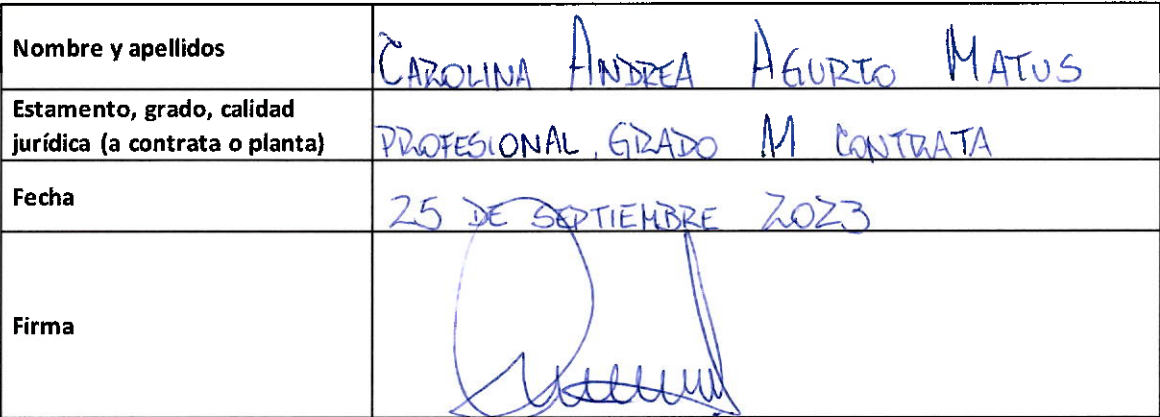 Nombre y apellidos
CAROLINA ANDREA AGURTO MATUS
Estamento, grado, calidad
jurídica (a contrata o planta)
PROFESIONAL, GRADO M CONTRATA
Fecha
25 DE SEPTIEMBRE 2023
Firma